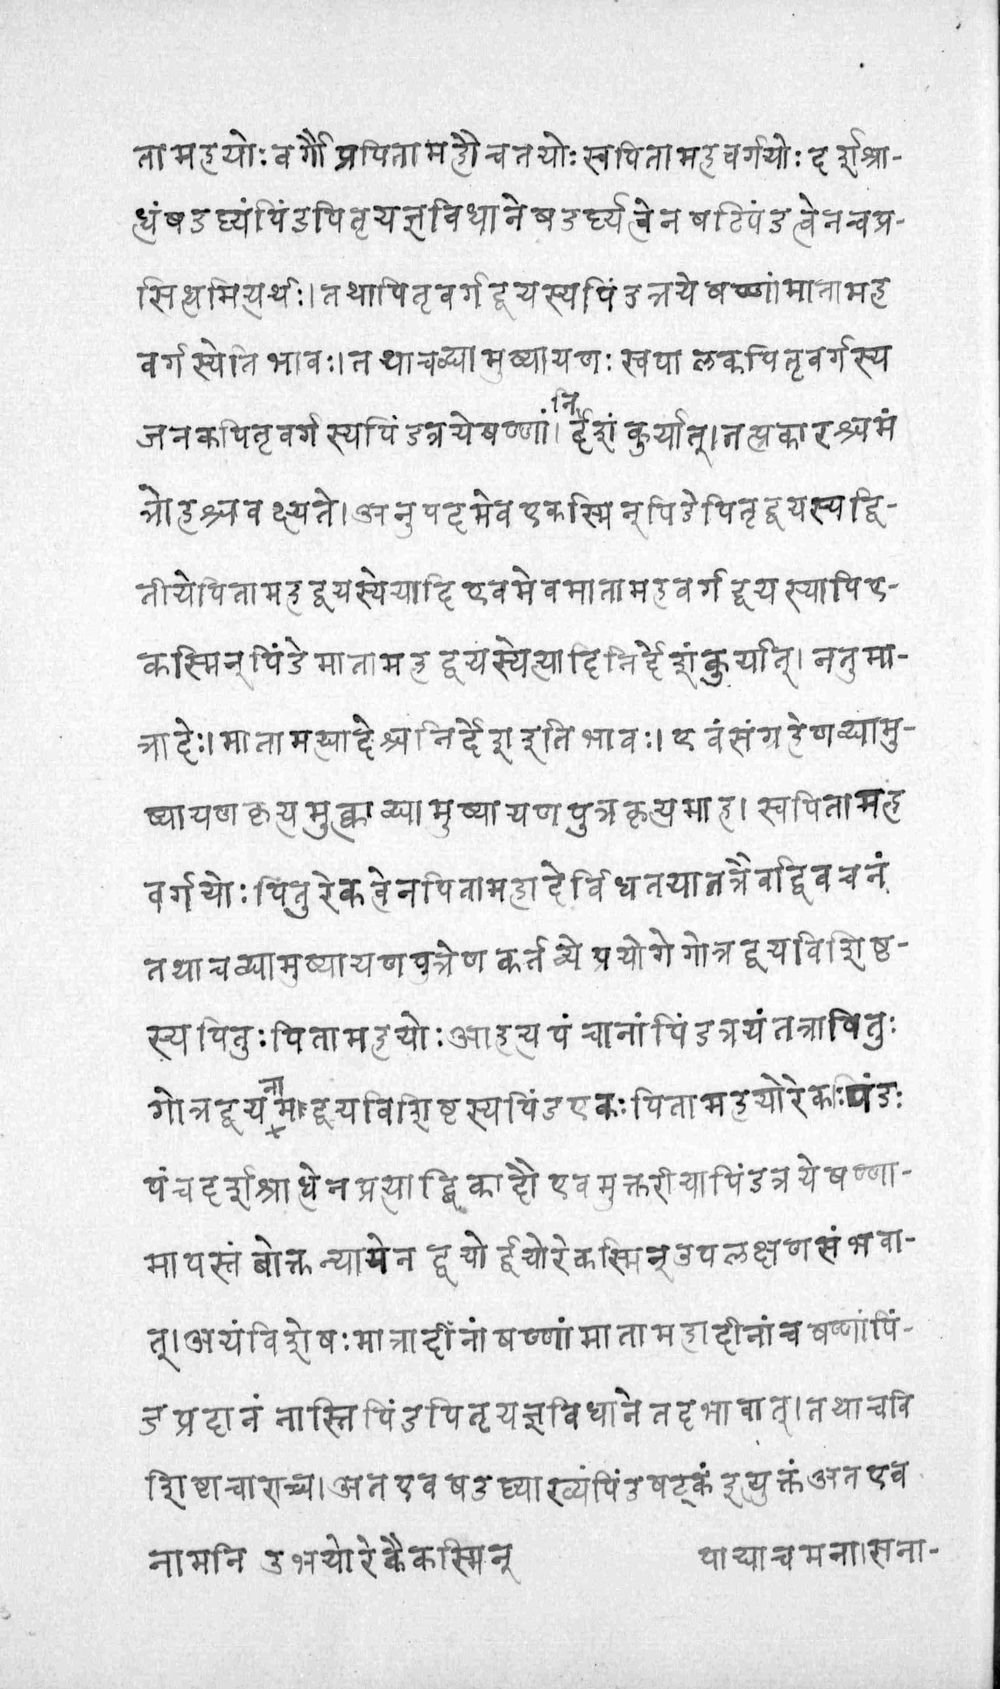 तामहयोः वर्गौ प्रपितामहौ च तयोः स्वपितामहवर्गयोः दर्शश्रा-
ध्धं षडर्घ्यं पिंडपितृयज्ञविधाने षडर्घ्यत्वेन षटिपंडत्वेन च प्र-
सिध्धमित्यर्थः। तथा पितृवर्गद्वयस्य पिंडत्रये षण्णां मातामह
वर्गस्येति भावः। तथा च व्द्यामुष्यायणः स्वपालकपितृवर्गस्य
जनकपितृवर्गस्य पिंडत्रये षण्णां। निर्द्देशं कुर्यात्। तत्प्रकारश्च मं
त्रोहश्च वक्ष्यते। अनुपदमेव एकस्मिन् पिंडे पितृद्वयस्य द्वि-
तीये पितामहद्वयस्येत्यादि एवमेव मातामहवर्गद्वयस्यापि ए-
कस्मिन् पिंडे मातामहद्वयस्येत्यादि निर्द्देशं कुर्यात्। न तु मा-
त्रादेः। मातामह्यादेश्च निर्द्देश इति भावः। एवं संग्रहेण व्द्यामु-
ष्यायणकृत्यमुक्त्वा व्द्यामुष्यायणपुत्रकृत्यमाह। स्वपितामह
वर्गयोः पितुरेकत्वेन पितामहादेर्विधतया तत्रैव द्विवचनं
तथा च व्द्यामुष्यायणपुत्रेण कर्तव्ये प्रयोगे गोत्रद्वयविशिष्ट-
स्य पितुः पितामहयोः आहत्य पंचानां पिंडत्रयं तत्रापि पितुः
गोत्रद्वयनामद्वयविशिष्टस्य पिंड एकः पितामहयोरेकः पिंडः
पंच दर्शश्राध्धेन प्रत्याब्दिकादौ एवमुक्तरीत्या पिंडत्रये षण्णा-
मापस्तंबोक्तन्यायेन द्वयोर्द्वयोरेकस्मिन् उपलक्षणसंभवा-
त्। अयं विशेषः मात्रादीनां षण्णां मातामहादीनां च षण्णां पिं-
डप्रदानं नास्ति पिंडपितृयज्ञविधाने तदभावात्। तथा च वि
शिष्टाचाराच्च। अत एव षडर्घ्याख्यं पिंडषट्कं इत्युक्तं अत एव
नामनि उभयोरेकैकस्मिन् पाद्याचमना। सना-